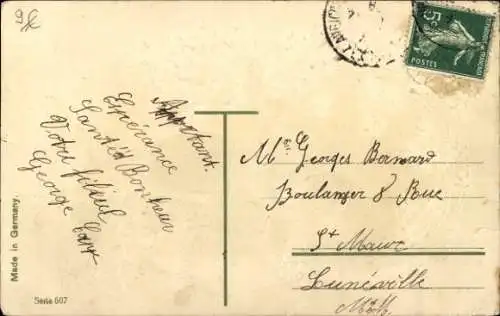 5c
POSTES
Apportant.
Espérance
Santé et Bonheur
Votre filleul
George
Mr Georges Bernard
Boulanger 8 Rue
St Maur
Lunéville
M&M
Made in Germany.
Serie 607